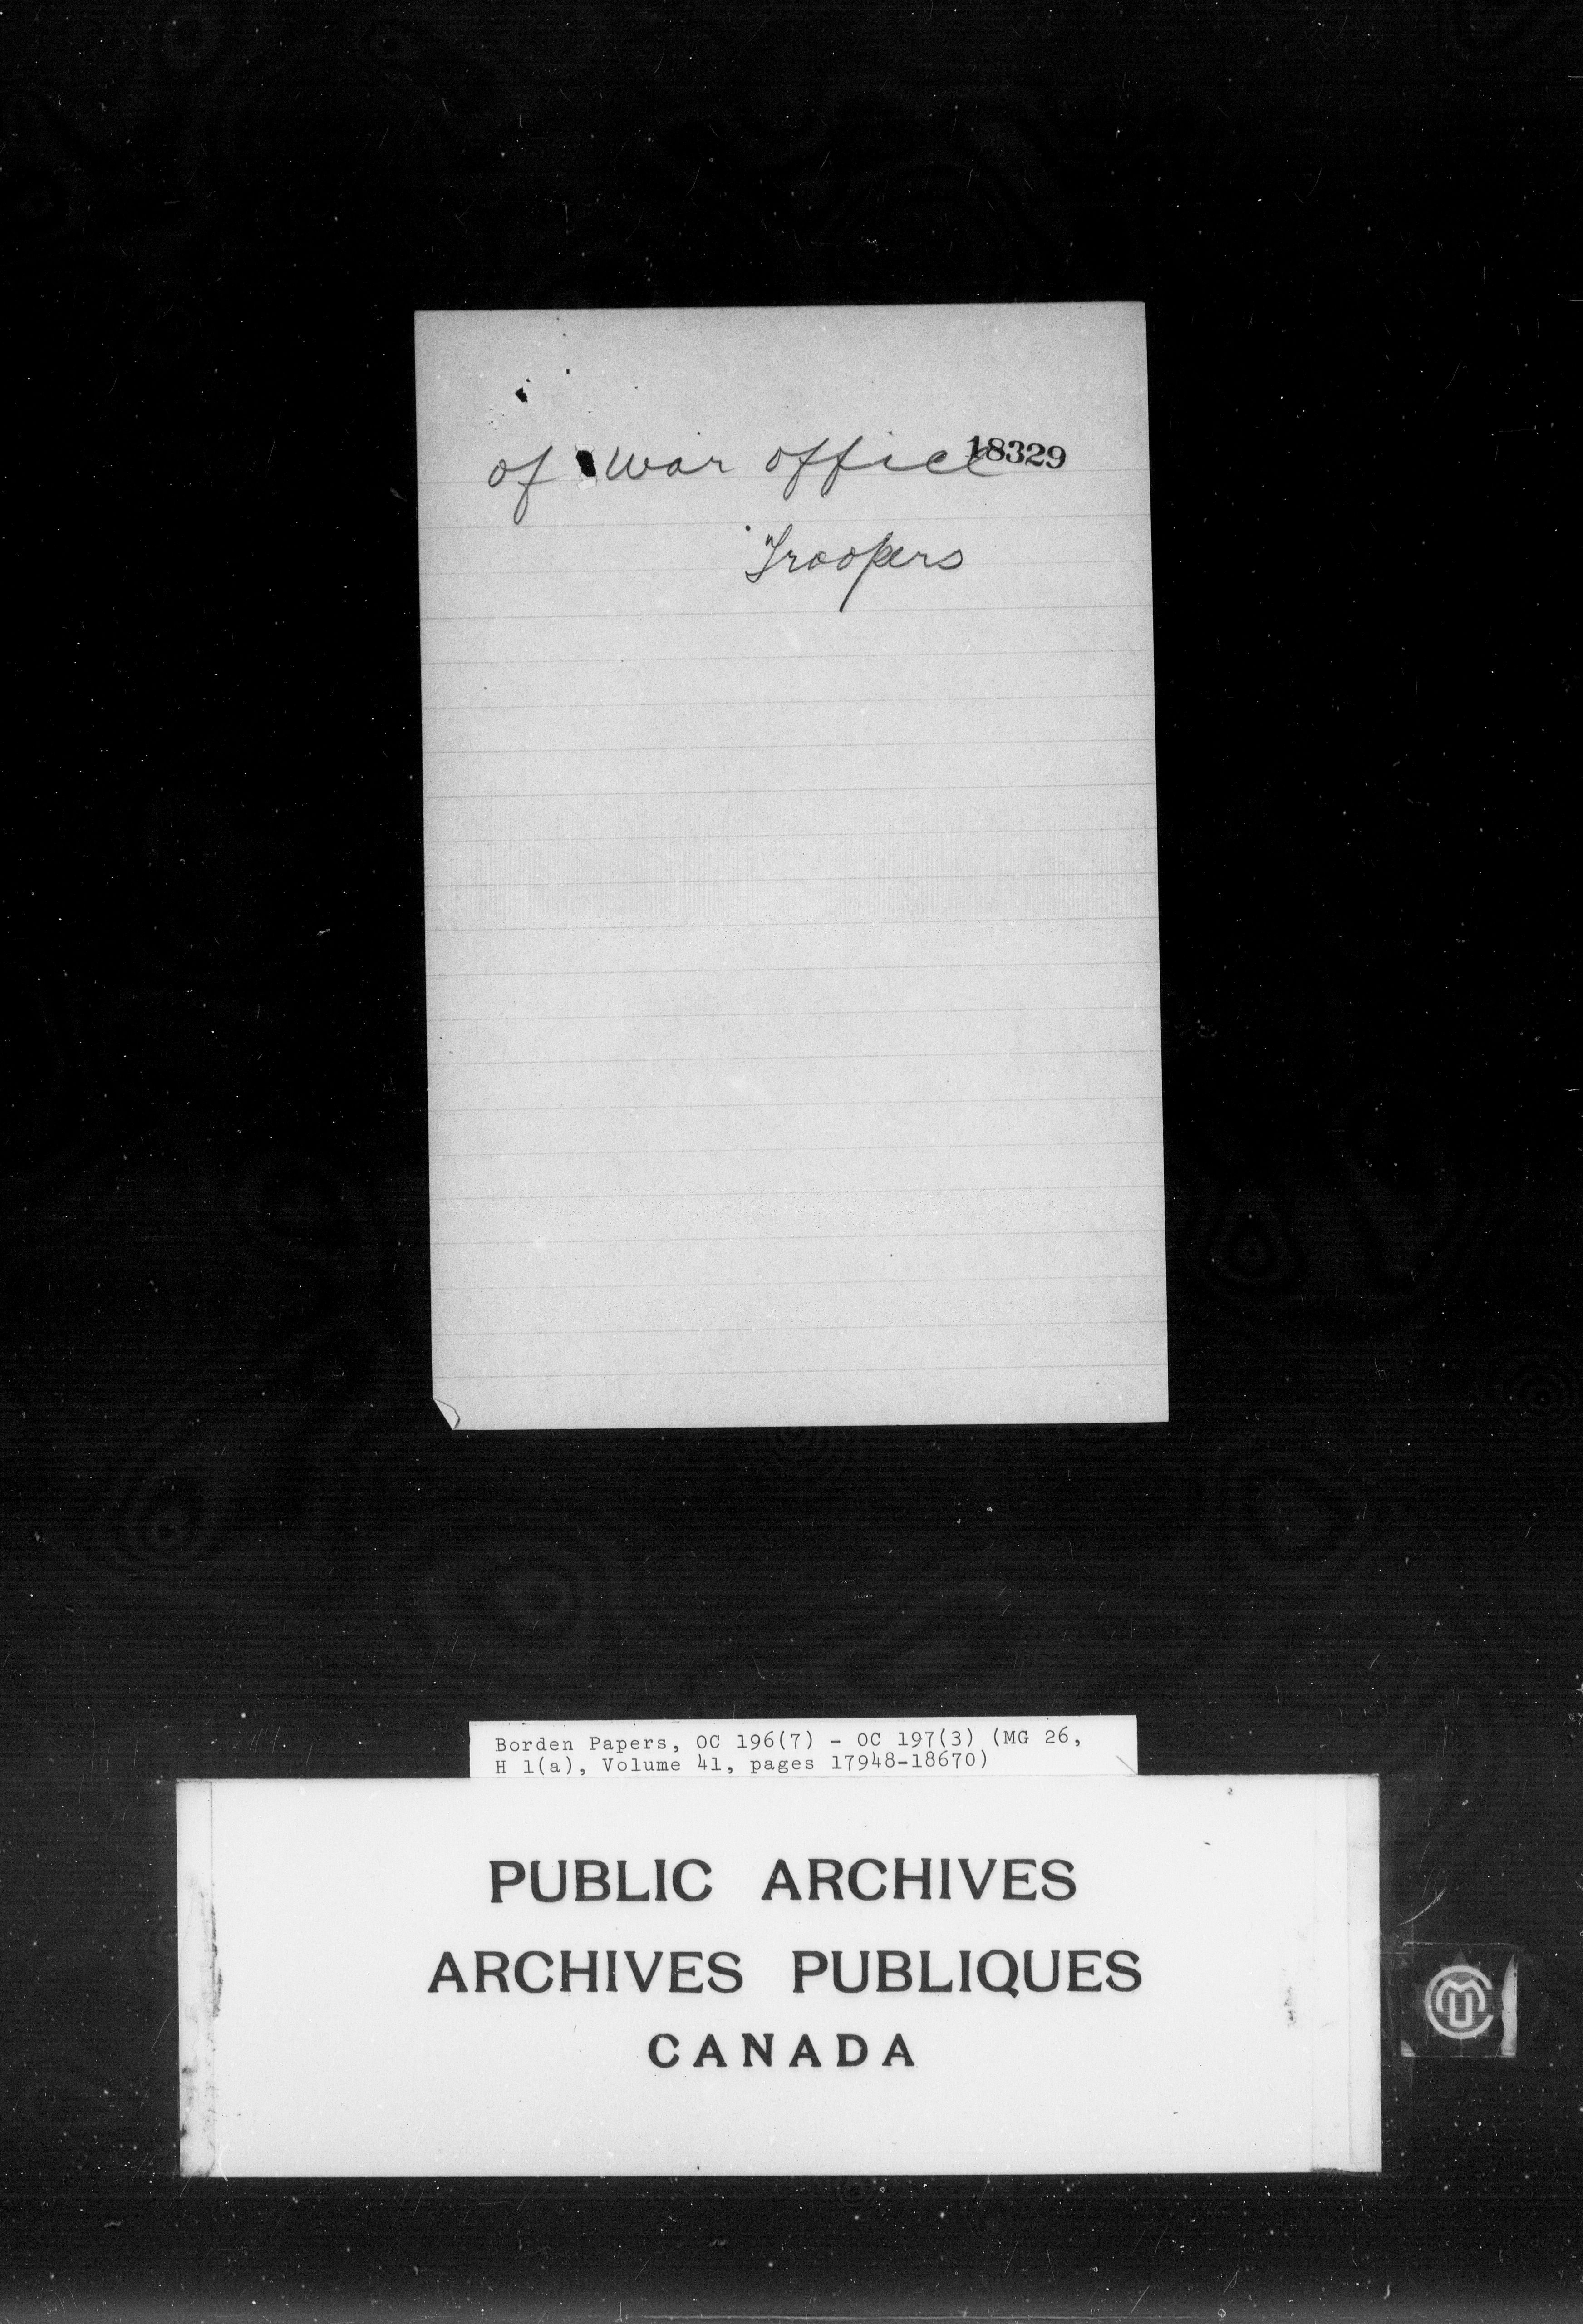 of war office
18329
Troopers
Borden Papers, OC 196(7) - OC 197(3) (MG 26,
H 1(a), Volume 41, pages 17948-18670)
PUBLIC ARCHIVES
ARCHIVES PUBLIQUES
CANADA